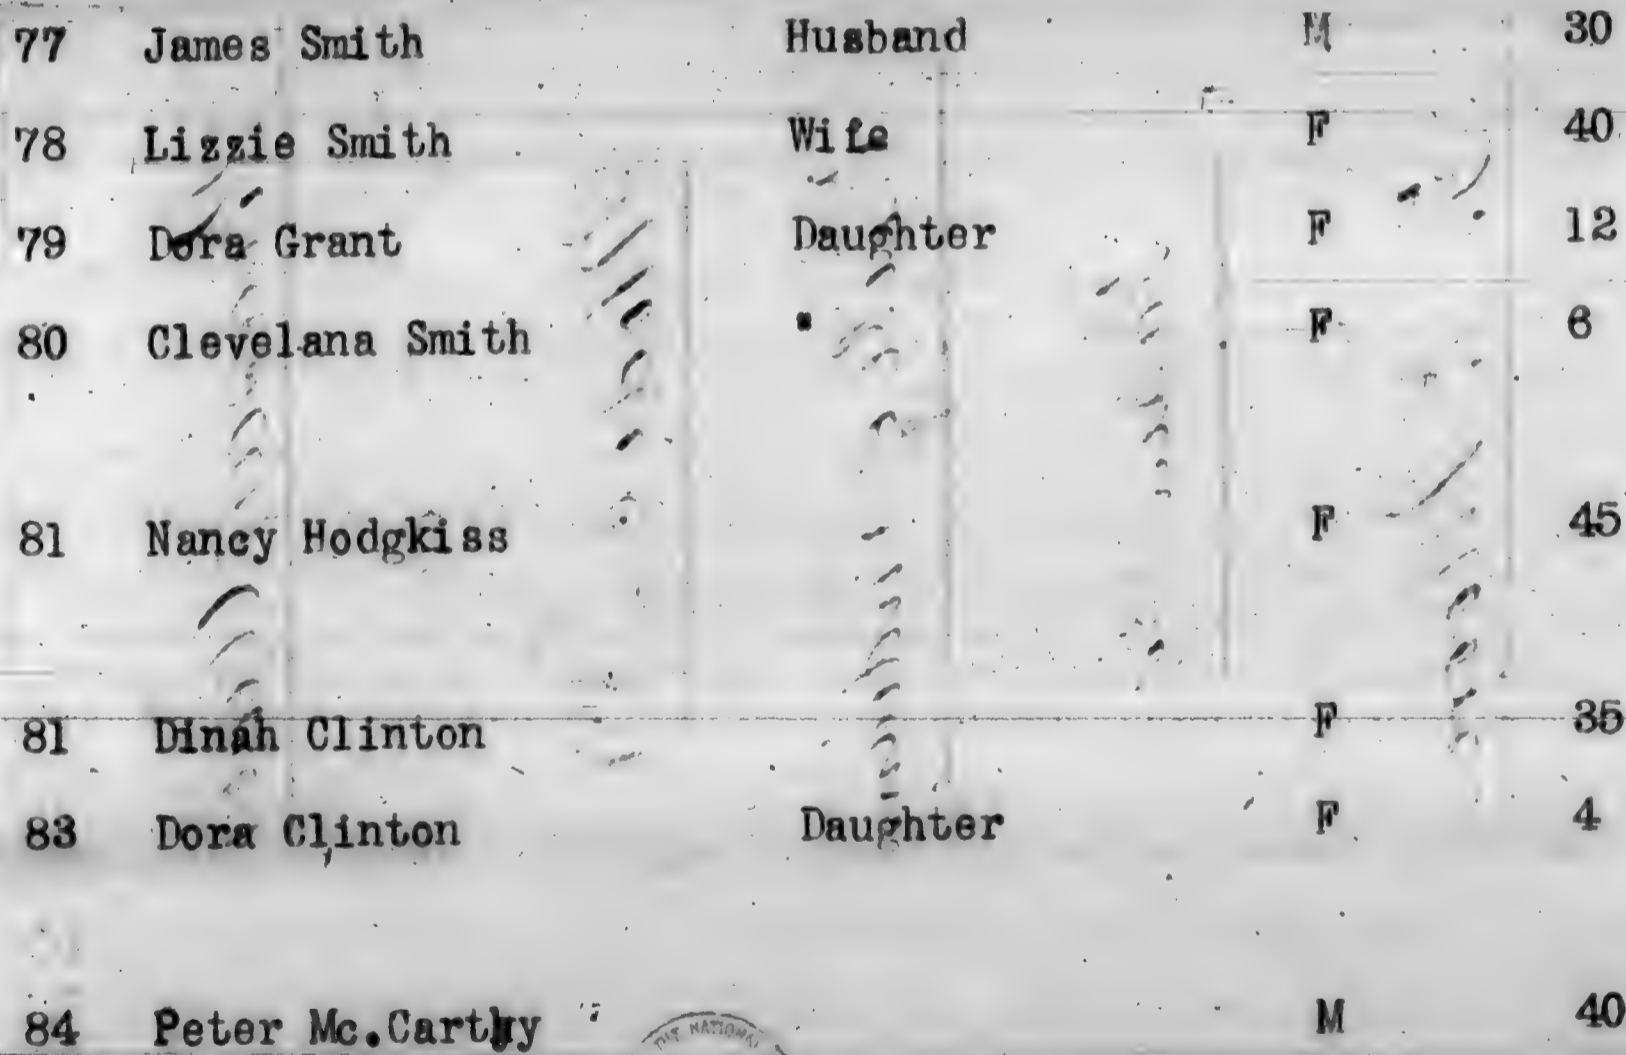 77 James Smith Husband M 30
78 Lizzie Smith Wife F 40
79 Dora Grant Daughter F 12
80 Clevelana Smith " F 6
81 Nancy Hodgkiss F 45
81 Dinah Clinton F 35
83 Dora Clinton Daughter F 4
84 Peter Mc.Carthy M 40
NATIONAL